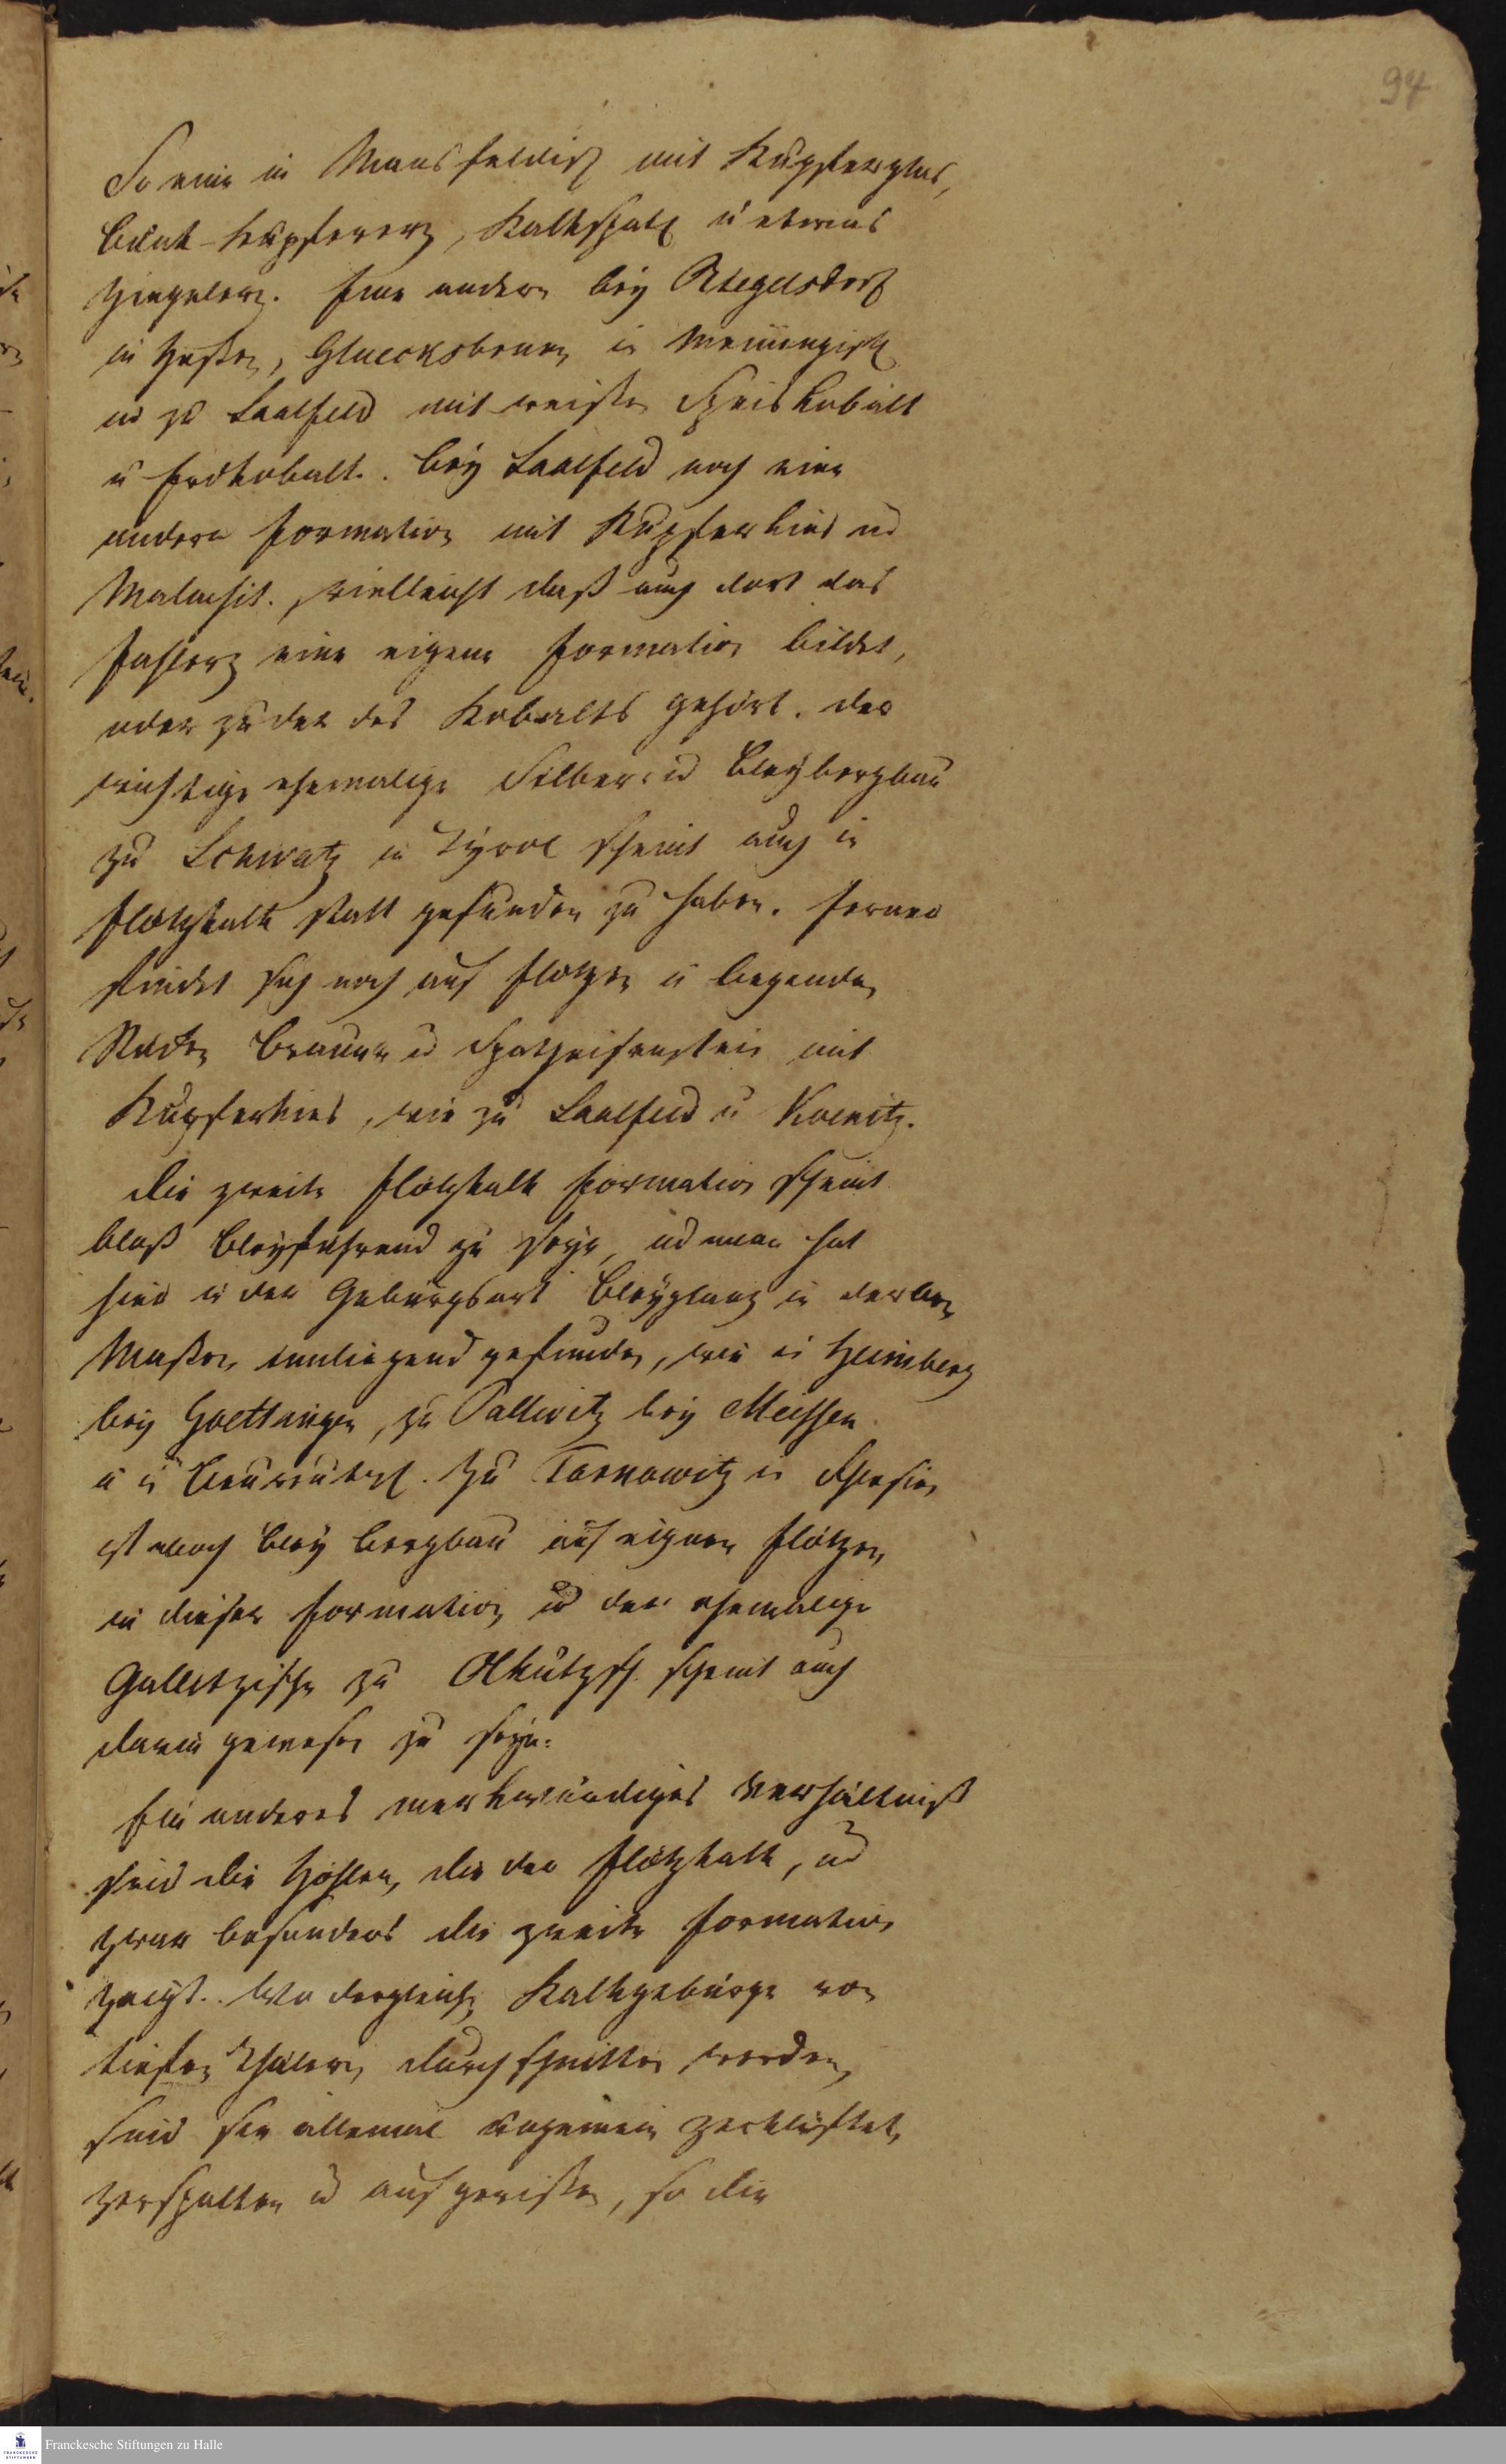 94
So eine in Mansfeldisch mit Kupferglas,
bunt-Kupfererz, Kalkspath u etwas
Ziegelerz. Eine andere bey Riegelsdorf
in Heßen, Gluecksbrunn in Meiningisch
ud zu Saalfeld mit weißen Speiskobalt
u Erdkobalt. bey Saalfeld noch eine
andere Formation mit Kupferkies ud
Malachit. vielleicht daß auch dort das
Fahlerz eine eigene Formation bildet,
oder zu der des Kobalts gehört. der
wichtige ehemalige Silber ud Bleybergbau
zu Schwatz in Tyrol scheint auch in
Flötzkalk statt gefunden zu haben. Ferner
findet sich noch auf Flötzen u liegenden
Stöcken Braun ud Spatheisenstein mit
Kupferkies, wie zu Saalfeld u Koenitz.
die zweite Flötzkalk Formation scheint
bloß Bleyführend zu seyn, ud man hat
hier in der Gebürgsart Bleyglanz in derben
Maßen innliegend gefunden, wie in Heimberg
bey Goettingen, zu Pallwitz bey Meissen
u in. Zu Tarnowitz in Schlesien
ist noch Bley bergbau auf eignen Flötzen
in dieser Formation, ud der ehemalige
Gallitzische zu Olkutzsch scheint auch
darin gewesen zu seyn.
Ein anderes merkwürdiges Verhältniß
sind die Höhlen, die der Flötzkalk, ud
zwar besonders die zweite Formation
zeigt. Wo dergleich Kalkgebürge von
tiefen Thälern durchschnitten werden,
sind sie allemal ungemein zerklüftet,
zerspalten ud aufgerißen, so die
Franckesche Stiftungen zu Halle